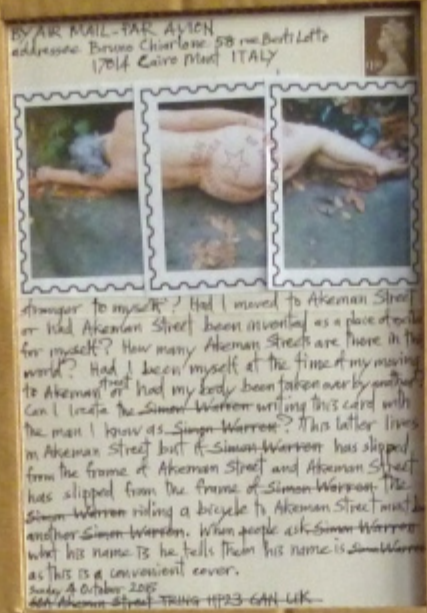 BY AIR MAIL-PAR AVION
addressee Bruno Chiarlone 58 rue Berti Lotto
17014 Cairo Mont ITALY
stranger to myself? Had I moved to Akeman Street
or had Akeman Street been invented as a place of exile
for myself? How many Akeman Streets are there in the
world? Had I been myself at the time of my moving
to Akeman Street or had my body been taken over by another?
Can I locate the Simon Warren writing this card with
the man I know as Simon Warren? This latter lives
in Akeman Street but if Simon Warren has slipped
from the frame of Akeman Street and Akeman Street
has slipped from the frame of Simon Warren the
Simon Warren riding a bicycle to Akeman Street must be
another Simon Warren. When people ask Simon Warren
what his name is he tells them his name is Simon Warren
as this is a convenient cover.
Sunday 4 October 2015
Akeman Street TRING HP23 6AN UK